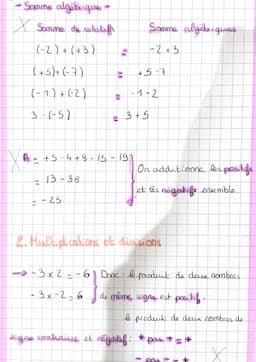 → Somme algébrique →
X Somme de relatifs Somme algébriques
(-2) + (+3) = -2 + 3
(+5) + (-7) = +5 - 7
(-1) + (-2) = -1 - 2
3 - (-5) = 3 + 5
A = +5 - 4 + 8 - 15 - 19
= 13 - 38
= - 25
On additionne les positifs
et les négatifs ensemble.
2. Multiplications et divisions
→ - 3 x 2 = - 6
- 3 x - 2 = 6
Donc le produit de deux nombres
de même signe est positif.
le produit de deux nombres de
signe contraire et négatif : + par + = +
- par - = +